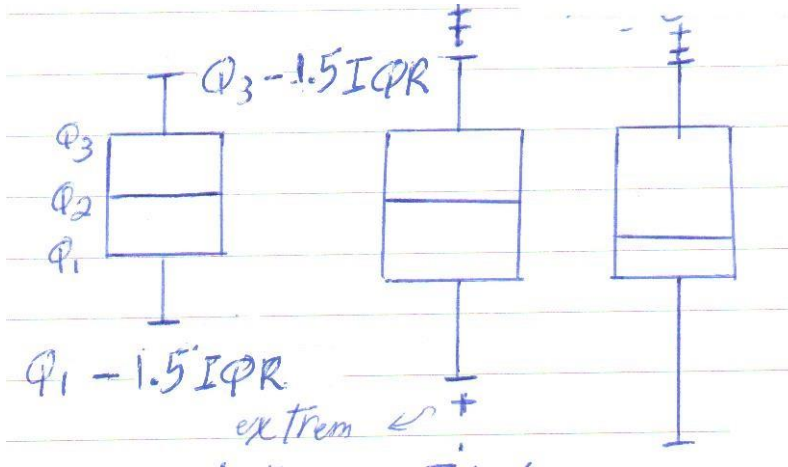 Q3 - 1.5 IQR
Q3
Q2
Q1
Q1 - 1.5 IQR
extrem